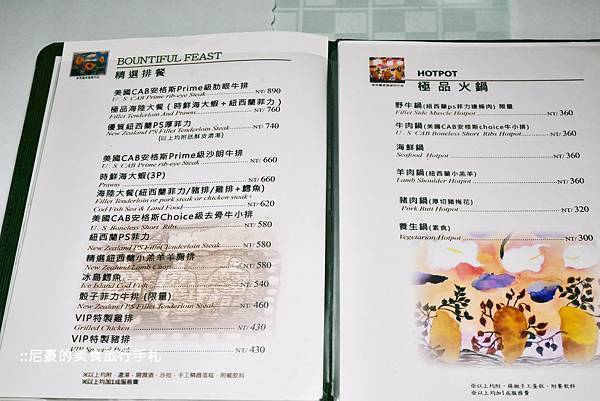 BOUNTIFUL FEAST
精選排餐
美國CAB安格斯Prime級肋眼牛排
U. S CAB Prime rib-eye Steak NT/ 890
極品海陸大餐 ( 時鮮海大蝦+紐西蘭菲力 )
Fillet Tenderloin And Prawns NT/ 760
優質紐西蘭PS厚菲力
New Zealand PS Fillet Tenderloin Steak NT/ 740
(以上均附送酥皮濃湯)
美國CAB安格斯Prime級沙朗牛排
U. S CAB Prime rib-eye Steak NT/ 660
時鮮海大蝦(3P)
Prawns NT/ 660
海陸大餐(紐西蘭菲力/豬排/雞排+鱈魚)
Fillet Tenderloin or pork steak or chicken steak+
Cod Fish Sea & Land Food NT/ 620
美國CAB安格斯Choice級去骨牛小排
U. S Boneless Short Ribs NT/ 580
紐西蘭PS菲力
New Zealand PS Fillet Tenderloin Steak NT/ 580
精選紐西蘭小羔羊羊胸排
New Zealand Lamb Chops NT/ 580
冰島鱈魚
Ice Island Cod Fish NT/ 540
骰子菲力牛排 (限量)
New Zealand PS Fillet Tenderloin Steak NT/ 460
VIP特製雞排
Grilled Chicken NT/ 430
VIP特製豬排
NT/ 430
※以上均加1成服務費
HOTPOT
極品火鍋
野牛鍋(紐西蘭ps菲力邊條肉) 限量
Fillet Side Muscle Hotpot NT/ 360
牛肉鍋(美國CAB安格斯choice牛小排)
U. S CAB Boneless Short Ribs Hotpot NT/ 360
海鮮鍋
Seafood Hotpot NT/ 360
羊肉鍋(紐西蘭小羔羊)
Lamb Shoulder Hotpot NT/ 360
豬肉鍋(厚切豬梅花)
Pork Butt Hotpot NT/ 320
養生鍋(素食)
Vegetarian Hotpot NT/ 300
※以上均加1成服務費
::尼豪的美食旅行手札